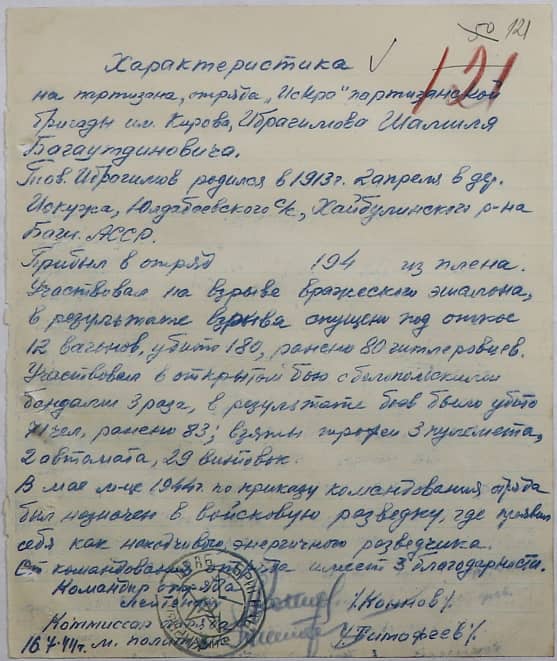 50 121
121
Характеристика
на партизана, отряда „Искра" партизанской
бригады им. Кирова, Ибрагимова Шамиля
Багаутдиновича.
Тов. Ибрагимов родился в 1913 г. 2 апреля в дер.
Искужа, Юлдабаевского с/с, Хайбулинского р-на
Баш. АССР.
Прибыл в отряд 194 из плена.
Участвовал на взрыве вражеского эшалона,
в результате взрыва спущено под откос
12 вагонов, убито 180, ранено 80 гитлеровцев.
Участвовал в открытом бою с белополскими
бандами 3 раза, в результате боев было убито
71 чел, ранено 83; взяты трофеи 3 пулемета,
2 автомата, 29 винтовок.
В мае м-це 1944 г. по приказу командования отряда
был назначен в войсковую разведку, где проявил
себя как находчивого, энергичного разведчика.
От командования отряда имеет 3 благодарности.
Командир отряда
лейтенант /Коннов/
Коммиссар
м. полит /Тимофеев/
16.7.44 г.